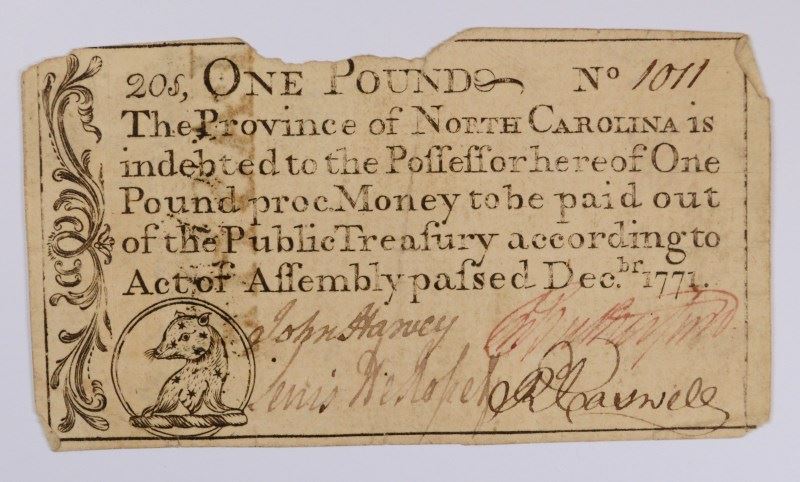 20s, ONE POUND No 1011
The Province of NORTH CAROLINA is
indebted to the Poſſeſſor hereof One
Pound proc. Money to be paid out
of the Public Treaſury according to
Act of Aſſembly paſſed Dec.br 1771.
John Harvey
Lewis
R Caswell